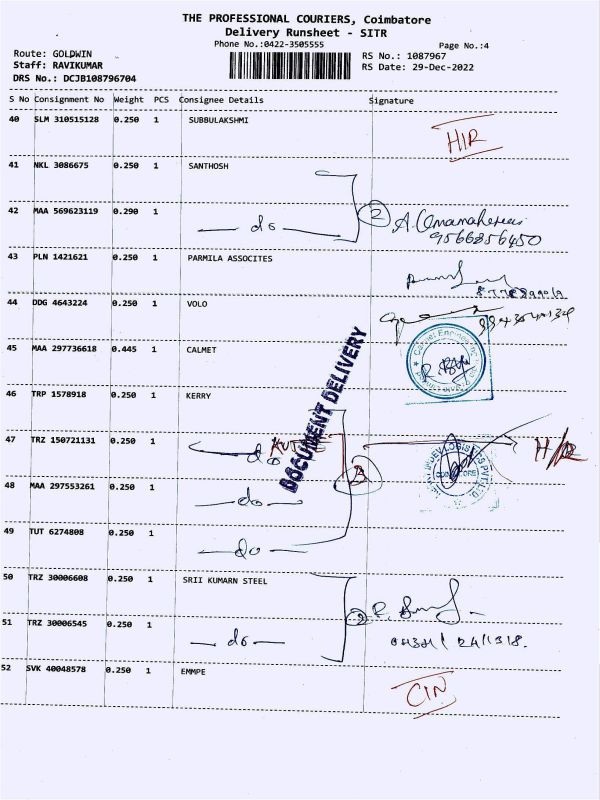 THE PROFESSIONAL COURIERS, Coimbatore
Delivery Runsheet - SITR
Phone No.:0422-3505555 Page No.:4
Route: GOLDWIN RS No.: 1087967
Staff: RAVIKUMAR RS Date: 29-Dec-2022
DRS No.: DCJB108796704
S No Consignment No Weight PCS Consignee Details Signature
40 SLM 310515128 0.250 1 SUBBULAKSHMI
H/R
41 NKL 3086675 0.250 1 SANTHOSH
42 MAA 569623119 0.290 1 do 2
9566856450
43 PLN 1421621 0.250 1 PARMILA ASSOCITES
44 DDG 4643224 0.250 1 VOLO
45 MAA 297736618 0.445 1 CALMET
DOCUMENT DELIVERY
46 TRP 1578918 0.250 1 KERRY
47 TRZ 150721131 0.250 1 do H/R
48 MAA 297553261 0.250 1 do 3
49 TUT 6274808 0.250 1 do
50 TRZ 30006608 0.250 1 SRII KUMARN STEEL
51 TRZ 30006545 0.250 1 do 2
52 SVK 40048578 0.250 1 EMMPE
C/N